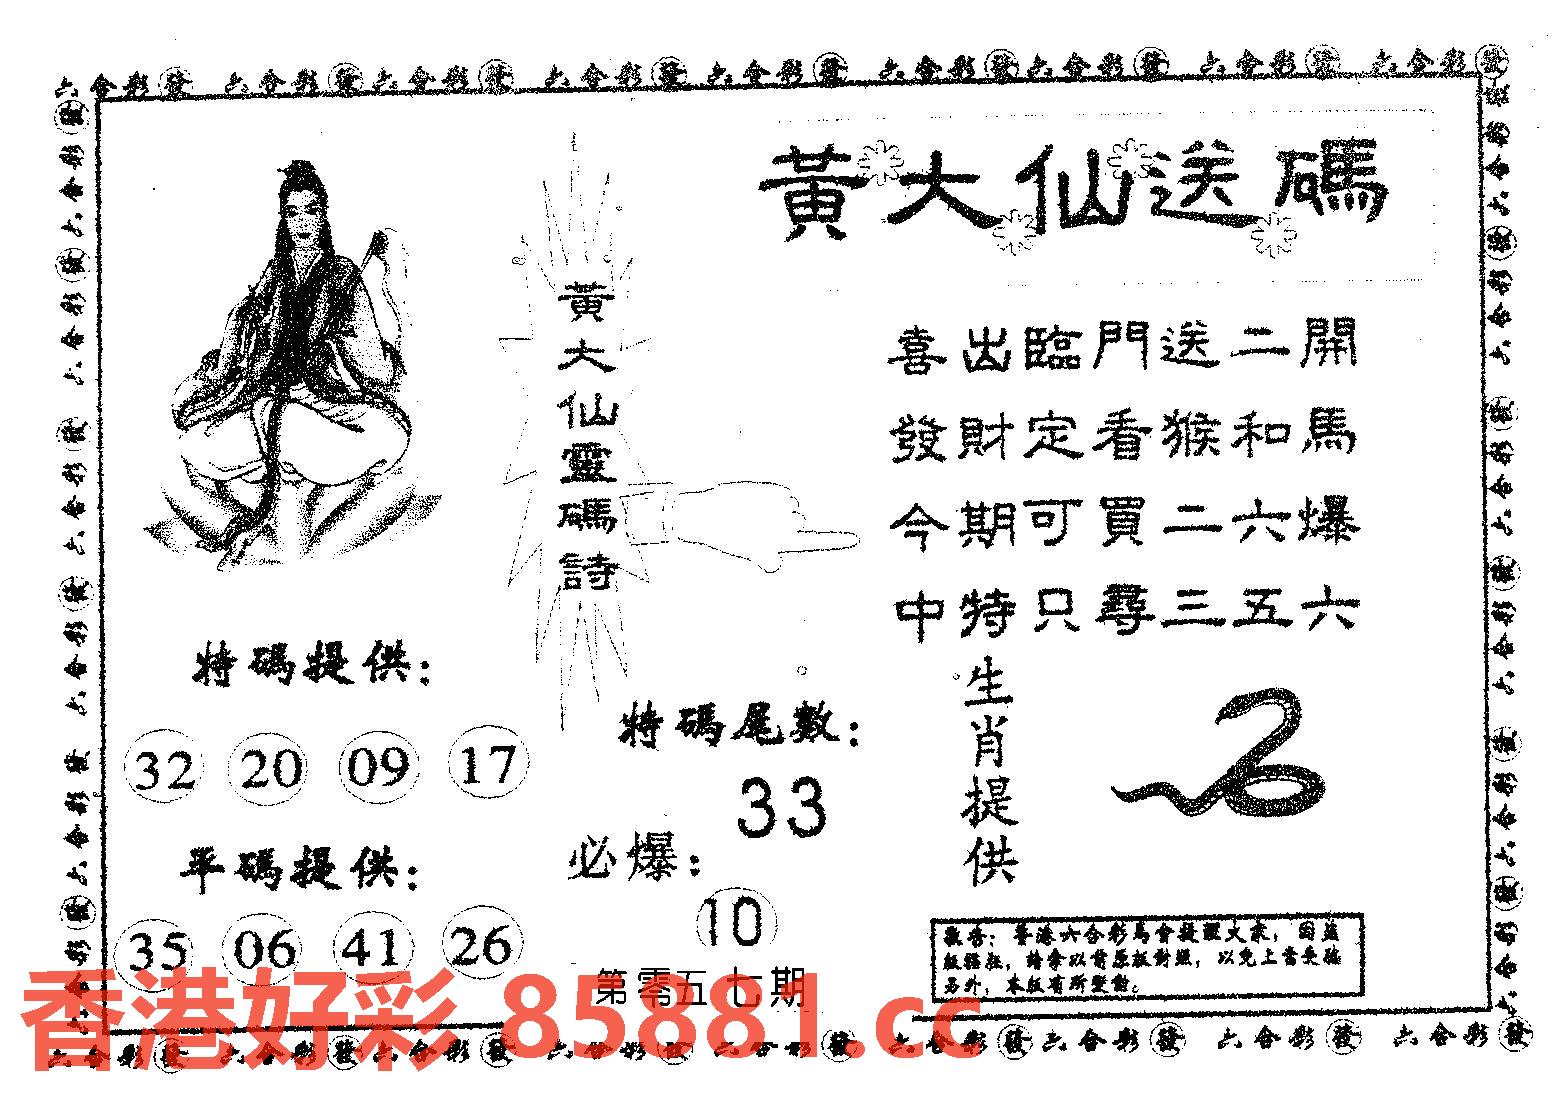 黃大仙送碼
黃大仙靈碼詩
喜出臨門送二開
發財定看猴和馬
今期可買二六爆
中特只尋三五六
特碼提供：
32 20 09 17
平碼提供：
35 06 41 26
特碼尾數：
33
必爆：
10
第零五七期
生肖提供
敬告：香港六合彩馬會提醒大家，因盜
版猖狂，請拿以前原版對照，以免上當受騙
另外，本版有所變動。
六合彩發 六合彩發 六合彩發 六合彩發 六合彩發 六合彩發 六合彩發 六合彩發 六合彩發
六合彩發 六合彩發 六合彩發 六合彩發 六合彩發 六合彩發 六合彩發 六合彩發 六合彩發
香港好彩 85881.cc